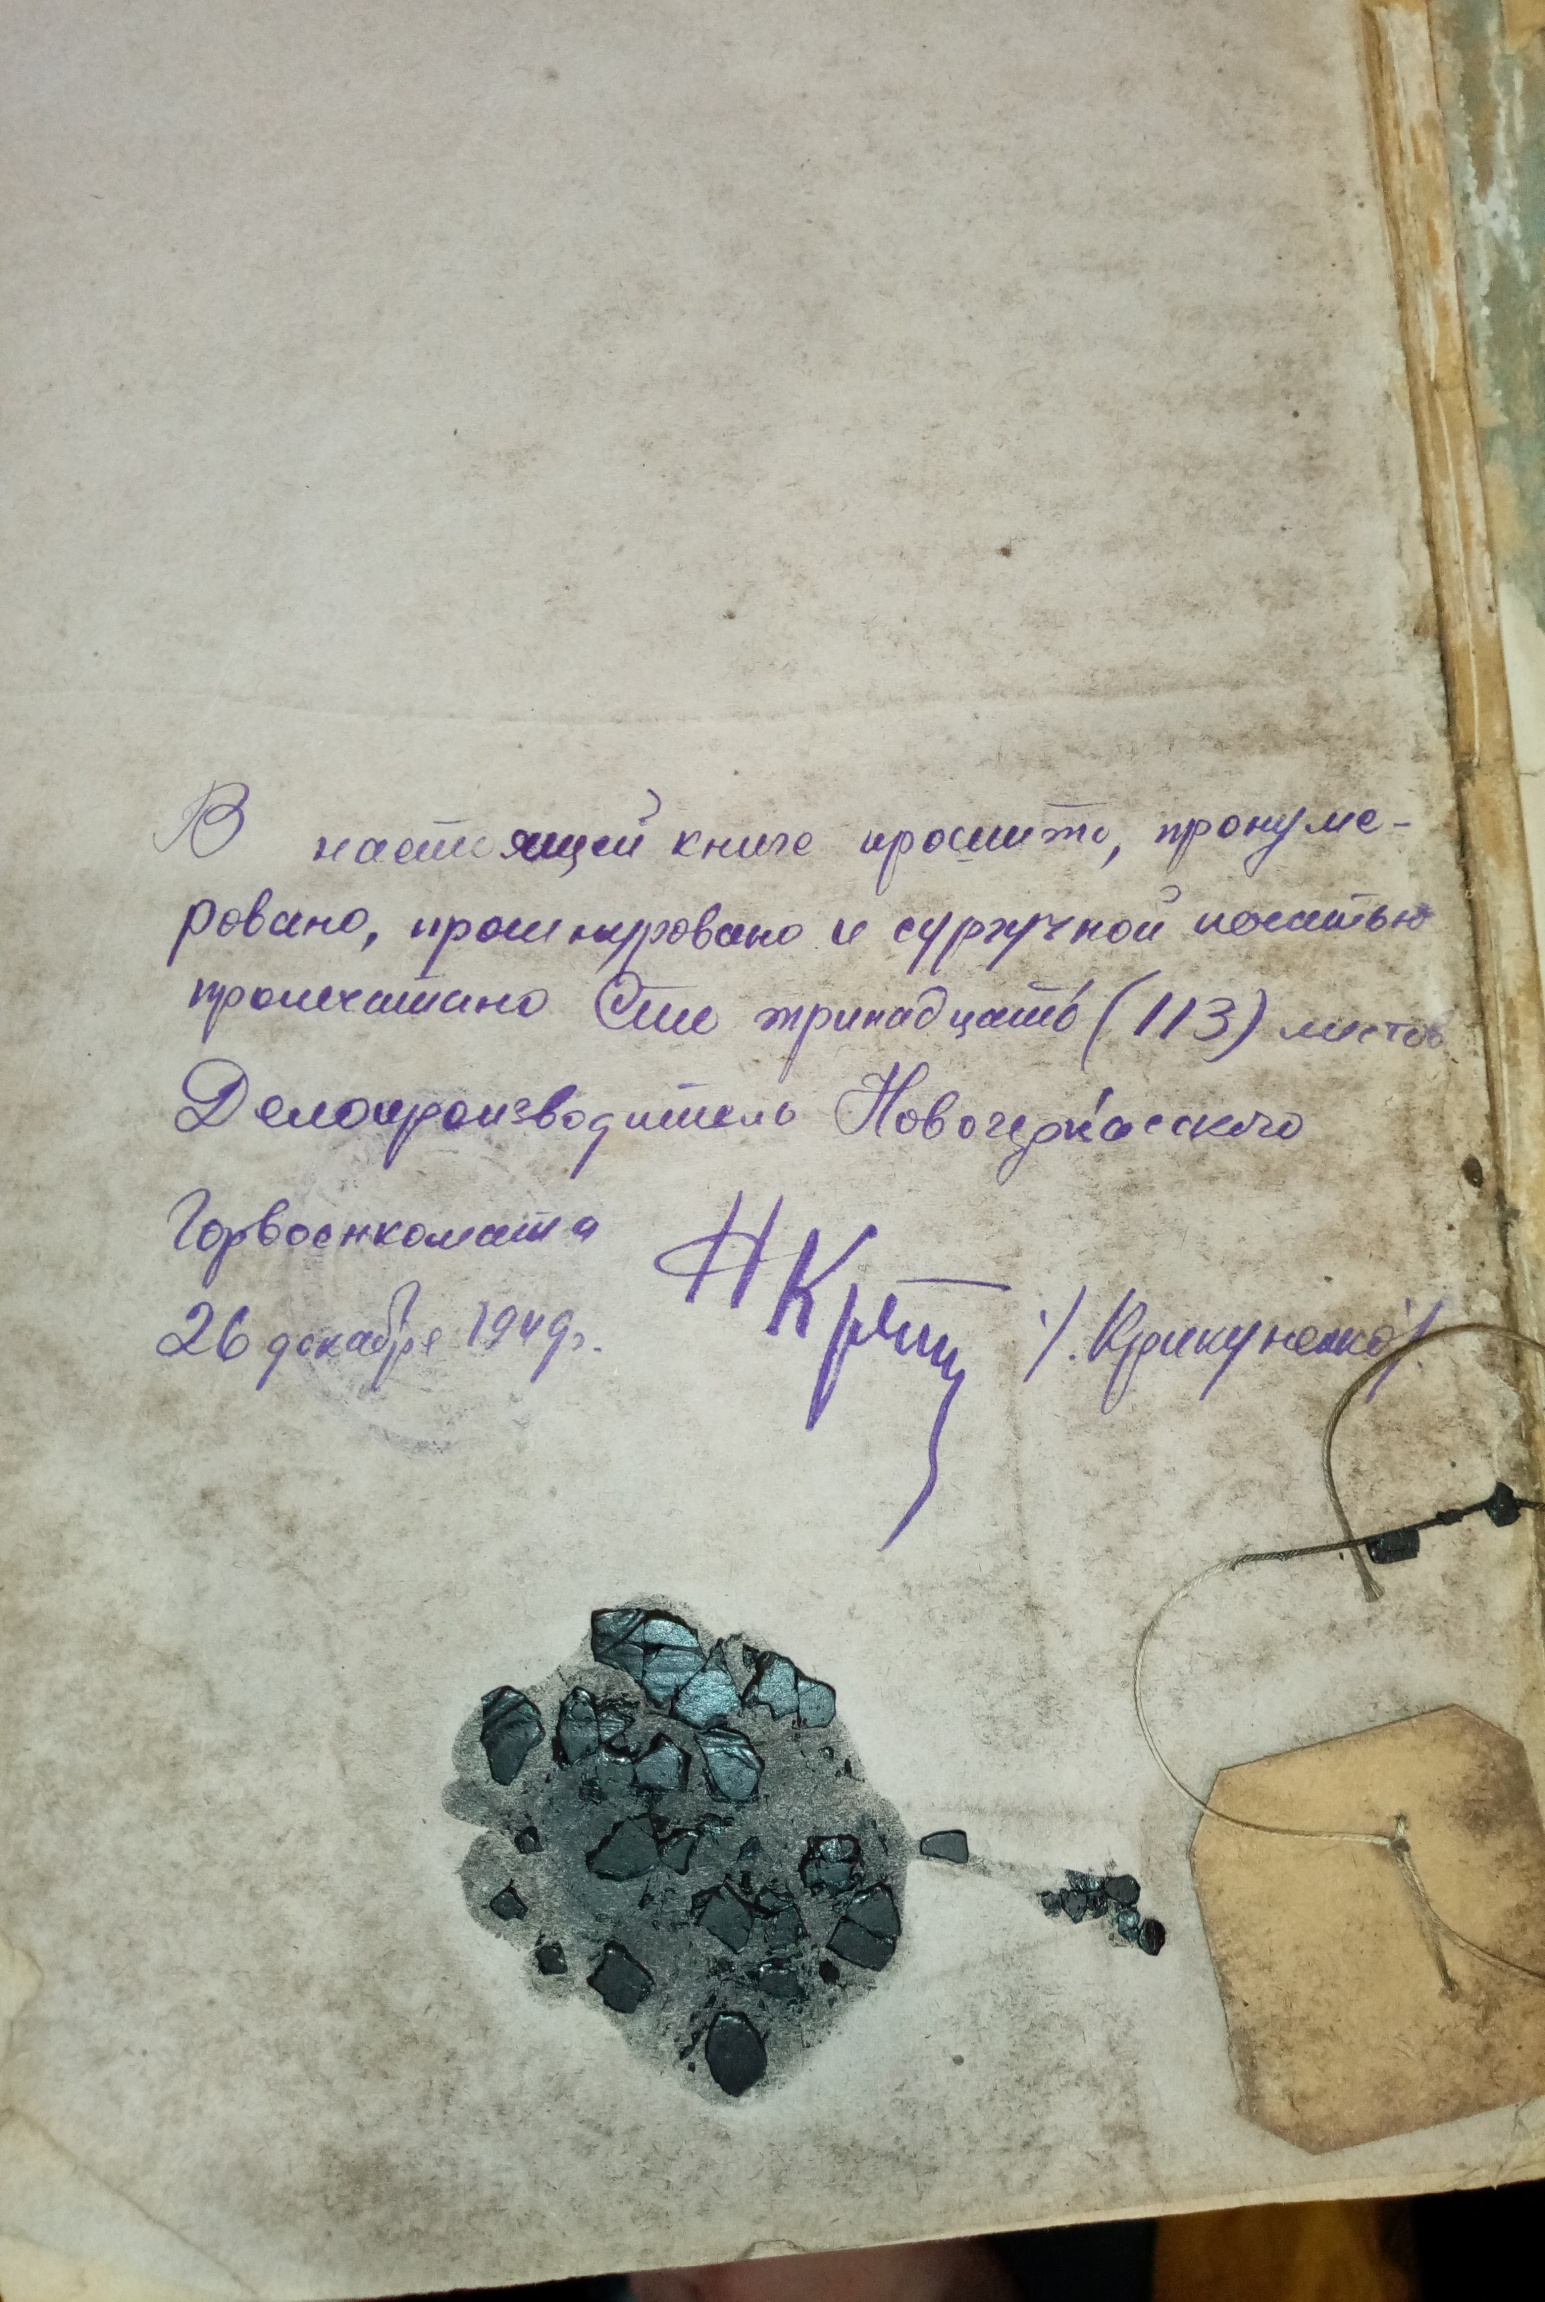 В настоящей книге прошито, пронуме-
ровано, прошнуровано и сургучной печатью
пропечатано Сто тринадцать (113) листов
Делопроизводитель Новочеркасского
Горвоенкомата
26 декабря 1949г. /. Крикуненко/.